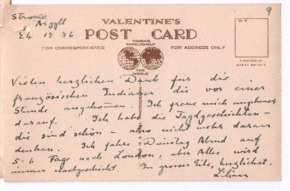 9
Strone
Argyll
26 12 36
VALENTINE'S
POST CARD
FOR CORRESPONDENCE
FOR ADDRESS ONLY
Vielen herzlichen Dank für die
französischen Indianer die vor einer
Stunde angekommen. Ich freue mich
darauf. Ich habe die Jagdgeschichten-
die sind schön - also nicht mehr daran
denken. Ich fahre Dienstag Abend auf
5-6 Tage nach London, aber Alles wird
immer nachgeschickt. In grosser Eile, herzlichst.